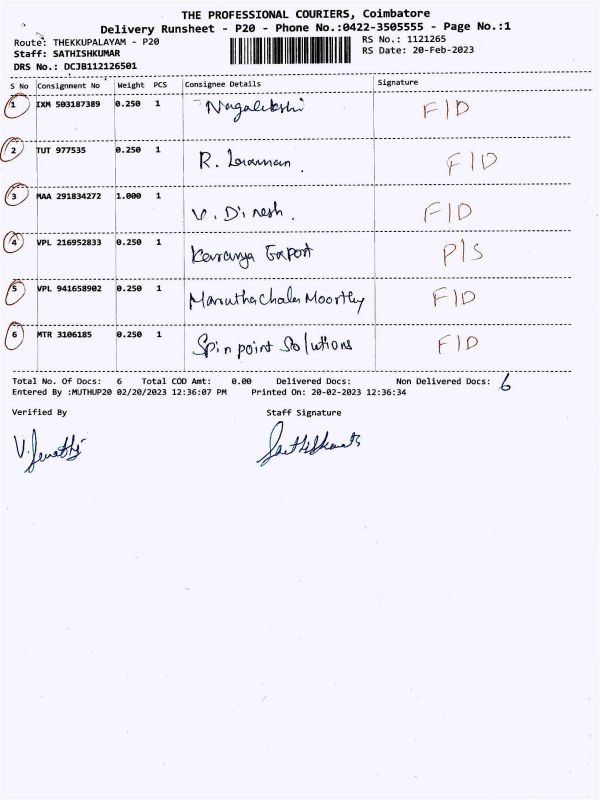 THE PROFESSIONAL COURIERS, Coimbatore
Delivery Runsheet - P20 - Phone No.:0422-3505555 - Page No.:1
Route: THEKKUPALAYAM - P20
RS No.: 1121265
Staff: SATHISHKUMAR
RS Date: 20-Feb-2023
DRS No.: DCJB112126501
S No Consignment No Weight PCS Consignee Details Signature
1 IXM 503187389 0.250 1 F/D
2 TUT 977535 0.250 1 R. F/D
3 MAA 291834272 1.000 1 V. Dinesh. F/D
4 VPL 216952833 0.250 1 Export P/S
5 VPL 941658902 0.250 1 Maruthachala Moorthy F/D
6 MTR 3106185 0.250 1 Spinpoint Solutions F/D
Total No. Of Docs: 6 Total COD Amt: 0.00 Delivered Docs: Non Delivered Docs: 6
Entered By :MUTHUP20 02/20/2023 12:36:07 PM Printed On: 20-02-2023 12:36:34
Verified By Staff Signature